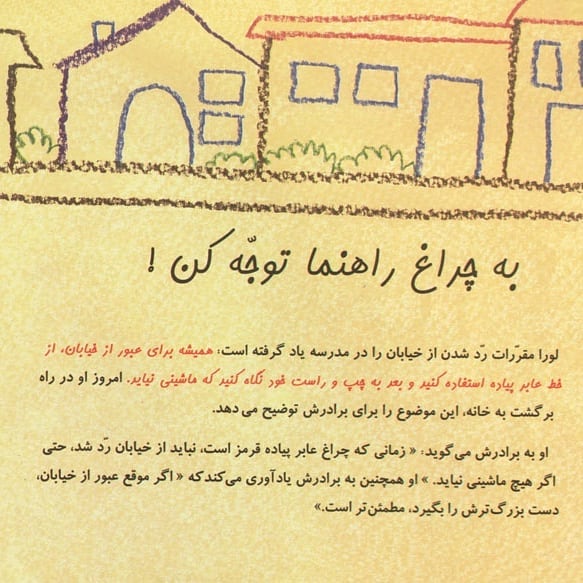 به چراغ راهنما توجّه کن !
لورا مقرّرات رّد شدن از خیابان را در مدرسه یاد گرفته است: همیشه برای عبور از خیابان، از
خط عابر پیاده استفاده کنید و بعد به چپ و راست خود نگاه کنید که ماشینی نیاید. امروز او در راه
برگشت به خانه، این موضوع را برای برادرش توضیح می‌دهد.
او به برادرش می‌گوید: « زمانی که چراغ عابر پیاده قرمز است، نباید از خیابان رّد شد، حتی
اگر هیچ ماشینی نیاید. » او همچنین به برادرش یادآوری می‌کندکه « اگر موقع عبور از خیابان،
دست بزرگ‌ترش را بگیرد، مطمئن‌تر است.»